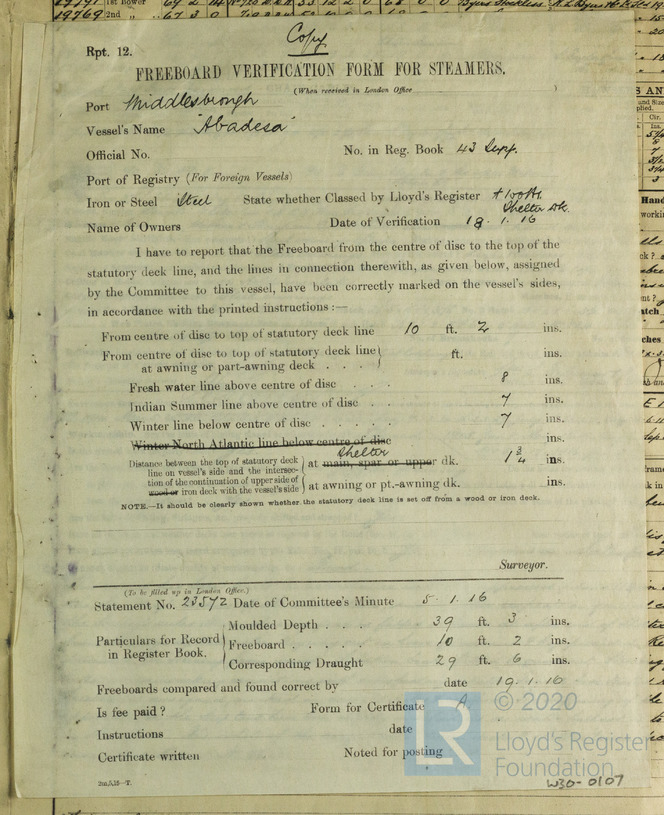 Copy
Rpt. 12.
FREEBOARD VERIFICATION FORM FOR STEAMERS.
(When received in London Office
Port Middlesbrough
Vessel's Name 'Abadesa'
Official No. No. in Reg. Book 43 Supp.
Port of Registry (For Foreign Vessels)
Iron or Steel Steel State whether Classed by Lloyd's Register +100A1
Shelter dk.
Name of Owners Date of Verification 18. 1. 16
I have to report that the Freeboard from the centre of disc to the top of the
statutory deck line, and the lines in connection therewith, as given below, assigned
by the Committee to this vessel, have been correctly marked on the vessel's sides,
in accordance with the printed instructions :—
From centre of disc to top of statutory deck line 10 ft. 2 ins.
From centre of disc to top of statutory deck line
at awning or part-awning deck . . . ft. ins.
Fresh water line above centre of disc . . . 8 ins.
Indian Summer line above centre of disc . 7 ins.
Winter line below centre of disc . . . . . 7 ins.
Winter North Atlantic line below centre of disc ins.
Shelter
Distance between the top of statutory deck
line on vessel's side and the intersec-
tion of the continuation of upper side of
wood or iron deck with the vessel's side
at main, spar or upper dk. 1 3/4 ins.
at awning or pt.-awning dk. ins.
NOTE.—It should be clearly shown whether the statutory deck line is set off from a wood or iron deck.
Surveyor.
(To be filled up in London Office.)
Statement No. 23572 Date of Committee's Minute 5. 1. 16
Particulars for Record
in Register Book.
Moulded Depth . . . 39 ft. 3 ins.
Freeboard . . . . . 10 ft. 2 ins.
Corresponding Draught 29 ft. 6 ins.
Freeboards compared and found correct by date 19.1.16
Is fee paid ? Form for Certificate A.
Instructions date
Certificate written Noted for posting
2m,5,15—T.
© 2020
LR
Lloyd's Register
Foundation
W30-0107